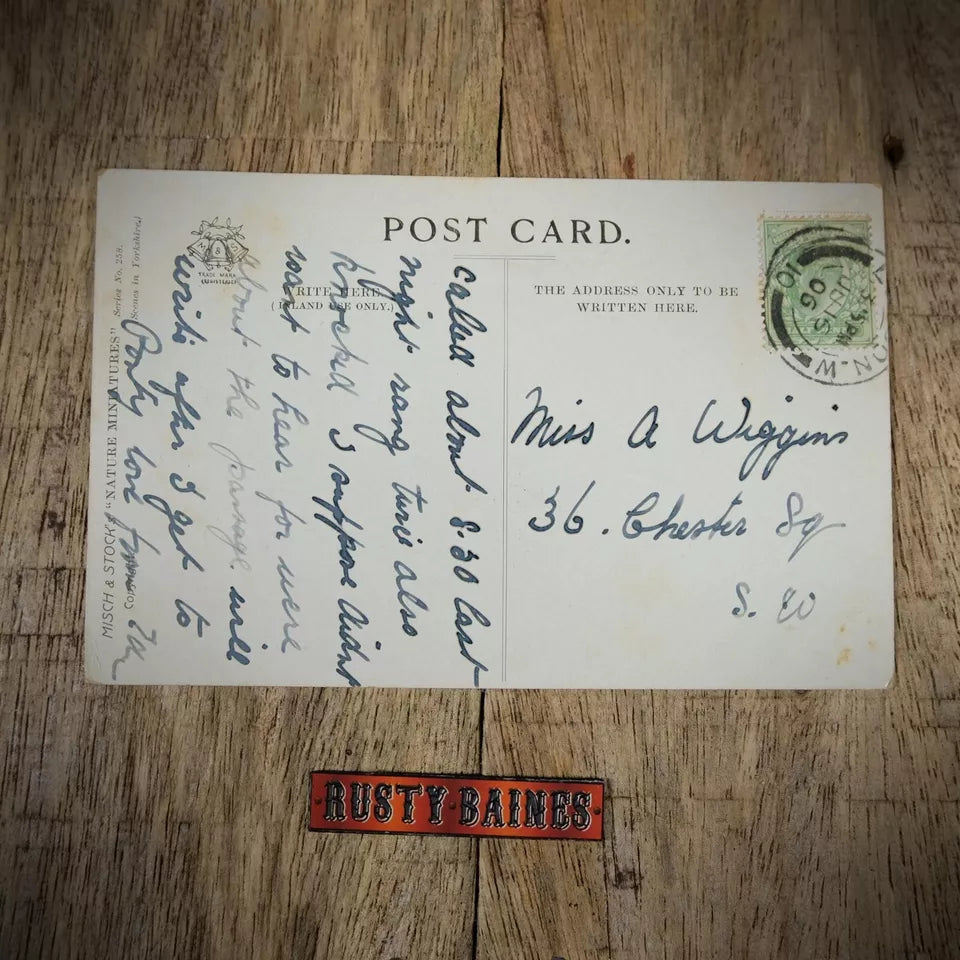 POST CARD.
WRITE HERE
(INLAND USE ONLY.)
THE ADDRESS ONLY TO BE
WRITTEN HERE.
TRADE MARK
REGISTERED
MISCH & STOCK'S "NATURE MINIATURES" Series No. 258.
Scenes in Yorkshire
called about 8.30 last
night rang twice also
knocked I suppose didnt
want to hear for were
about the passage will
write after I get to
love from
Miss A Wiggins
36. Chester Sq
S. W
LONDON. W
3 PM
JU 15
06
10
RUSTY BAINES